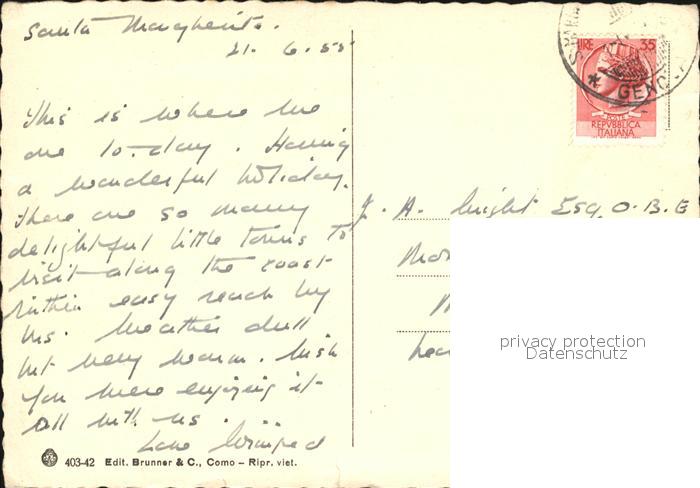 Santa Margherita.
21. 6. 55
This is where we
are to-day. Having
a wonderful holiday.
There are so many
delightful little towns to
visit along the coast
within easy reach by
bus. Weather dull
but very warm. Wish
you were enjoying it
all with us.
Love Winifred
403-42 Edit. Brunner & C., Como – Ripr. viet.
LIRE 35
POSTE
REPVBBLICA
ITALIANA
GENO
J. A. Wright Esq. O.B.E
privacy protection
Datenschutz